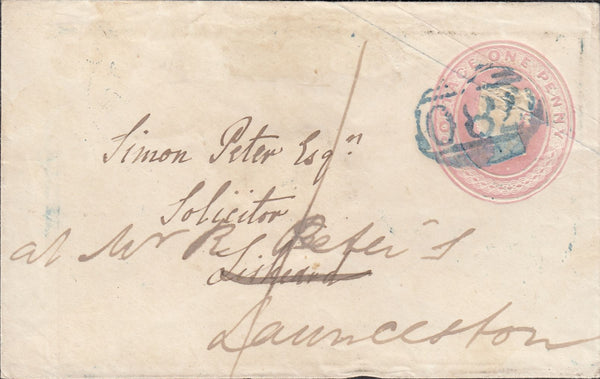 POSTAGE ONE PENNY
082
Simon Peter Esqr
Solicitor
at Mr R Peter's
Liskeard
Launceston